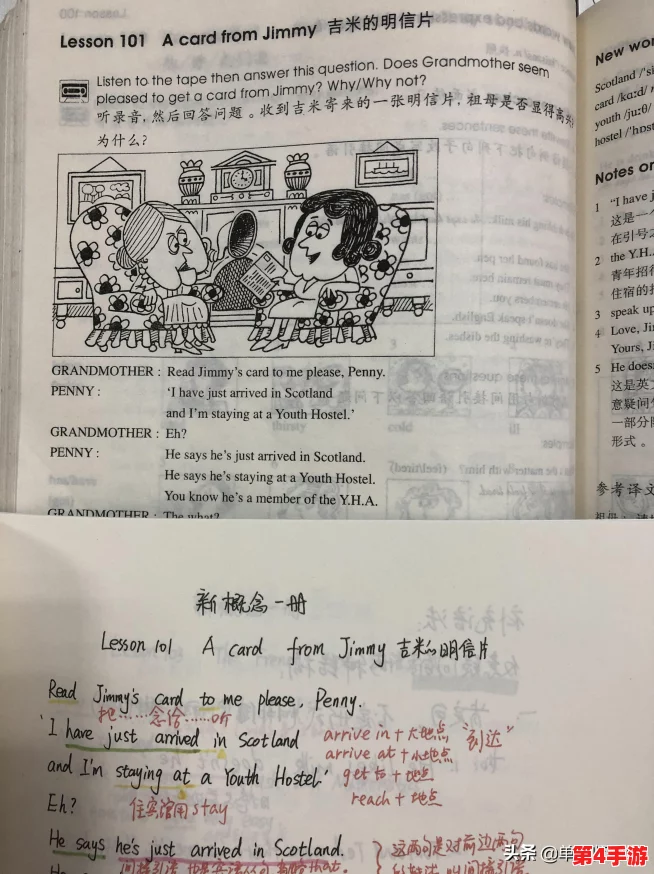 Lesson 101 A card from Jimmy 吉米的明信片
Listen to the tape then answer this question. Does Grandmother seem
pleased to get a card from Jimmy? Why/Why not?
听录音,然后回答问题。收到吉米寄来的一张明信片,祖母是否显得高兴
为什么?
GRANDMOTHER : Read Jimmy's card to me please, Penny.
PENNY : 'I have just arrived in Scotland
and I'm staying at a Youth Hostel.'
GRANDMOTHER : Eh?
PENNY : He says he's just arrived in Scotland.
He says he's staying at a Youth Hostel.
You know he's a member of the Y.H.A.
GRANDMOTHER : The what?
New wor
Scotland /'s
card /kɑ:d/
youth /ju:θ/
hostel /'hɒst
Notes on
1 "I have j
这是一个
在引号之
2 the Y.H.A
青年招待
住宿的
3 speak up
4 Love, Jim
Yours, Ji
5 He does
这是英
意疑问
一部分
形式。
参考译文
新概念一册
Lesson 101 A card from Jimmy 吉米的明信片
Read Jimmy's card to me please, Penny.
把……念给……听
'I have just arrived in Scotland arrive in + 大地点 "到达"
arrive at + 小地点
and I'm staying at a Youth Hostel.' get to + 地点
reach + 地点
Eh? 住宾馆用 stay
He says he's just arrived in Scotland. 这两句是对前边两句
头条 @单
第4手游